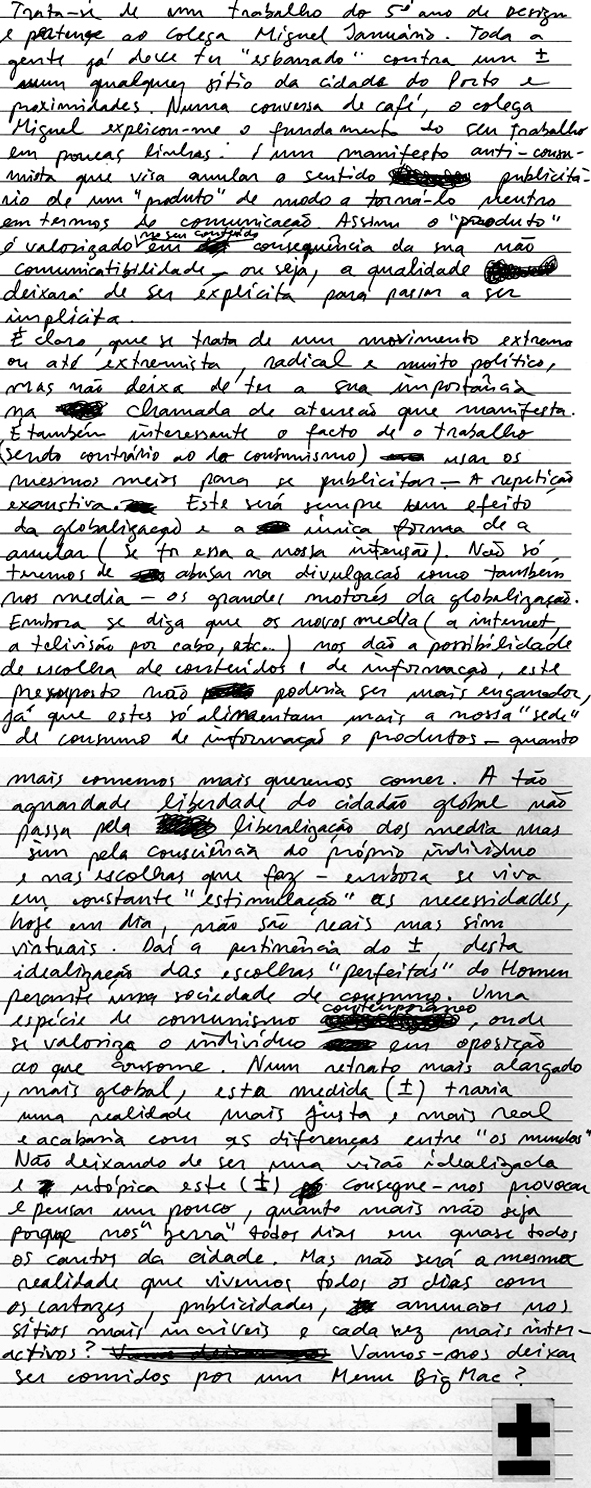 Trata-se de um trabalho do 5º ano de Design
e pertence ao colega Miguel Januário. Toda a
gente já deve ter "esbarrado" contra um ±
num qualquer sítio da cidade do Porto e
proximidades. Numa conversa de café, o colega
Miguel explicou-me o fundamento do seu trabalho
em poucas linhas: É um manifesto anti-consu-
mista que visa anular o sentido publicitá-
rio de um "produto" de modo a torná-lo neutro
em termos de comunicação. Assim o "produto"
é valorizado no seu conteúdo em consequência da sua não
comunicatibilidade - ou seja, a qualidade
deixará de ser explícita para passar a ser
implícita.
É claro, que se trata de um movimento extremo
ou até extremista, radical e muito político,
mas não deixa de ter a sua importância
na chamada de atensão que manifesta.
É também interessante o facto de o trabalho
(sendo contrário ao do consumismo) usar os
mesmos meios para se publicitar - A repetição
exaustiva. Este será sempre um efeito
da globalização e a única forma de a
anular (se for essa a nossa intensão). Não só
teremos de abusar na divulgação como também
nos media - os grandes motores da globalização.
Embora se diga que os novos media (a internet,
a televisão por cabo, etc...) nos dão a possibilidade
de escolha de conteúdos e de informação, este
pressuposto não poderia ser mais enganador,
já que estes só alimentam mais a nossa "sede"
de consumo de informação e produtos - quanto
mais comemos mais queremos comer. A tão
aguardade liberdade do cidadão global não
passa pela liberalização dos media mas
sim pela consciência do próprio indivíduo
e nas escolhas que faz - embora se viva
em constante "estimulação" as necessidades,
hoje em dia, não são reais mas sim
virtuais. Daí a pertinência do ±, desta
idealização das escolhas "perfeitas" do Homem
perante uma sociedade de consumo. Uma
espécie de comunismo contemporâneo, onde
se valoriza o indivíduo em oposição
ao que consome. Num retrato mais alargado
, mais global, esta medida (±) traria
uma realidade mais justa e mais real
e acabaria com as diferenças entre "os mundos"
Não deixando de ser uma visão idealizada
e utópica este (±) consegue-nos provocar
e pensar um pouco, quanto mais não seja
porque nos "berra" todos dias em quase todos
os cantos da cidade. Mas não será a mesma
realidade que vivemos todos os dias com
os cartazes, publicidades, anuncios nos
sítios mais incríveis e cada vez mais inter-
activos? Vamos-nos deixar
ser comidos por um Menu Big Mac?
±